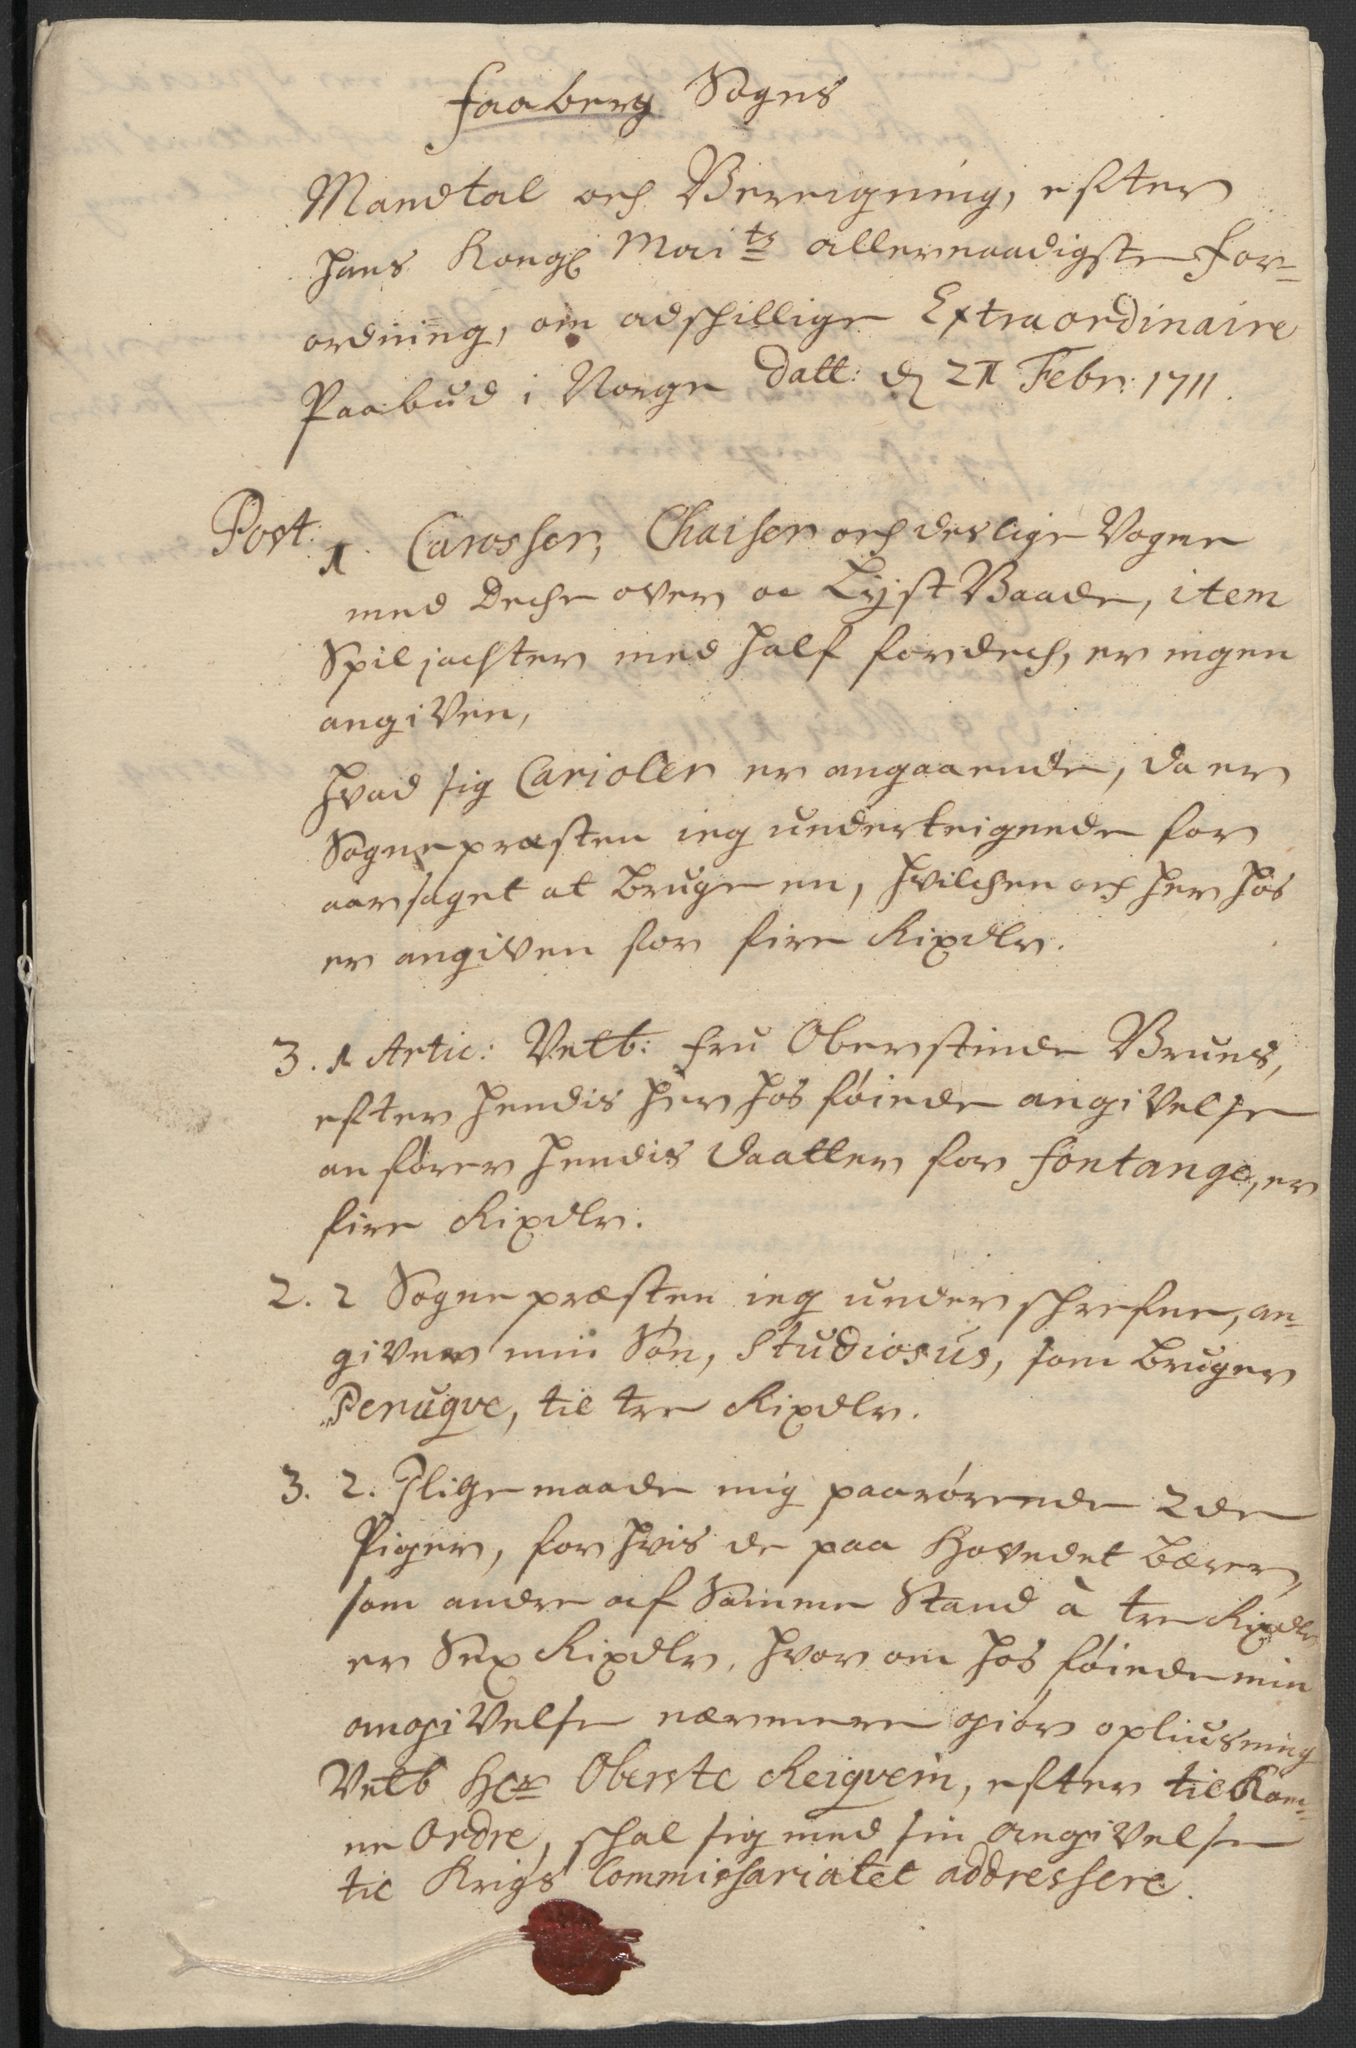 Faaberg Sogns
Mandtal och Bereigning, efter
Hans Kongl Mai<sup>ts</sup> allernaadigste For=
ordning, om adschillige Extraordinaire
Paabud i Norge Datt: d 21 Febr: 1711.
Post: 1 Carosser, Chaiser och deslige Vogne
med Deche over oc Lyst Baade, item
Spiljachter med half fordech, er ingen
angiven,
Hvad sig Carioler er angaaende, da er
Sognepræsten ieg underteignede for
aarsaget at bruge en, hvilchen och her hos
er angiven for fire Rixdlr.
3. 1 Artic: Velb: Fru Oberstinde Bruns,
efter hendis her hos føiede angivelse
anfører hendis daatter for fontange, er
fire Rixdlr.
2. 2 Sognepræsten ieg underschrefne, an=
giver min Søn, Studiosus, som bruger
Peruqve, til tre Rixdlr.
3. 2. Iligemaade mig paarørende 2de
Piger, for hvis de paa Hovedet bærer,
som andre af Samme Stand à tre Rixdlr
er Sex Rixdlr, hvor om hos føiede min
angivelse nærmere giør opliusning
Velb Her Oberste Reiqvein, efter tilkom=
ne Ordre, schal sig med sin angivelse
til Krigs Commissariatet addressere.